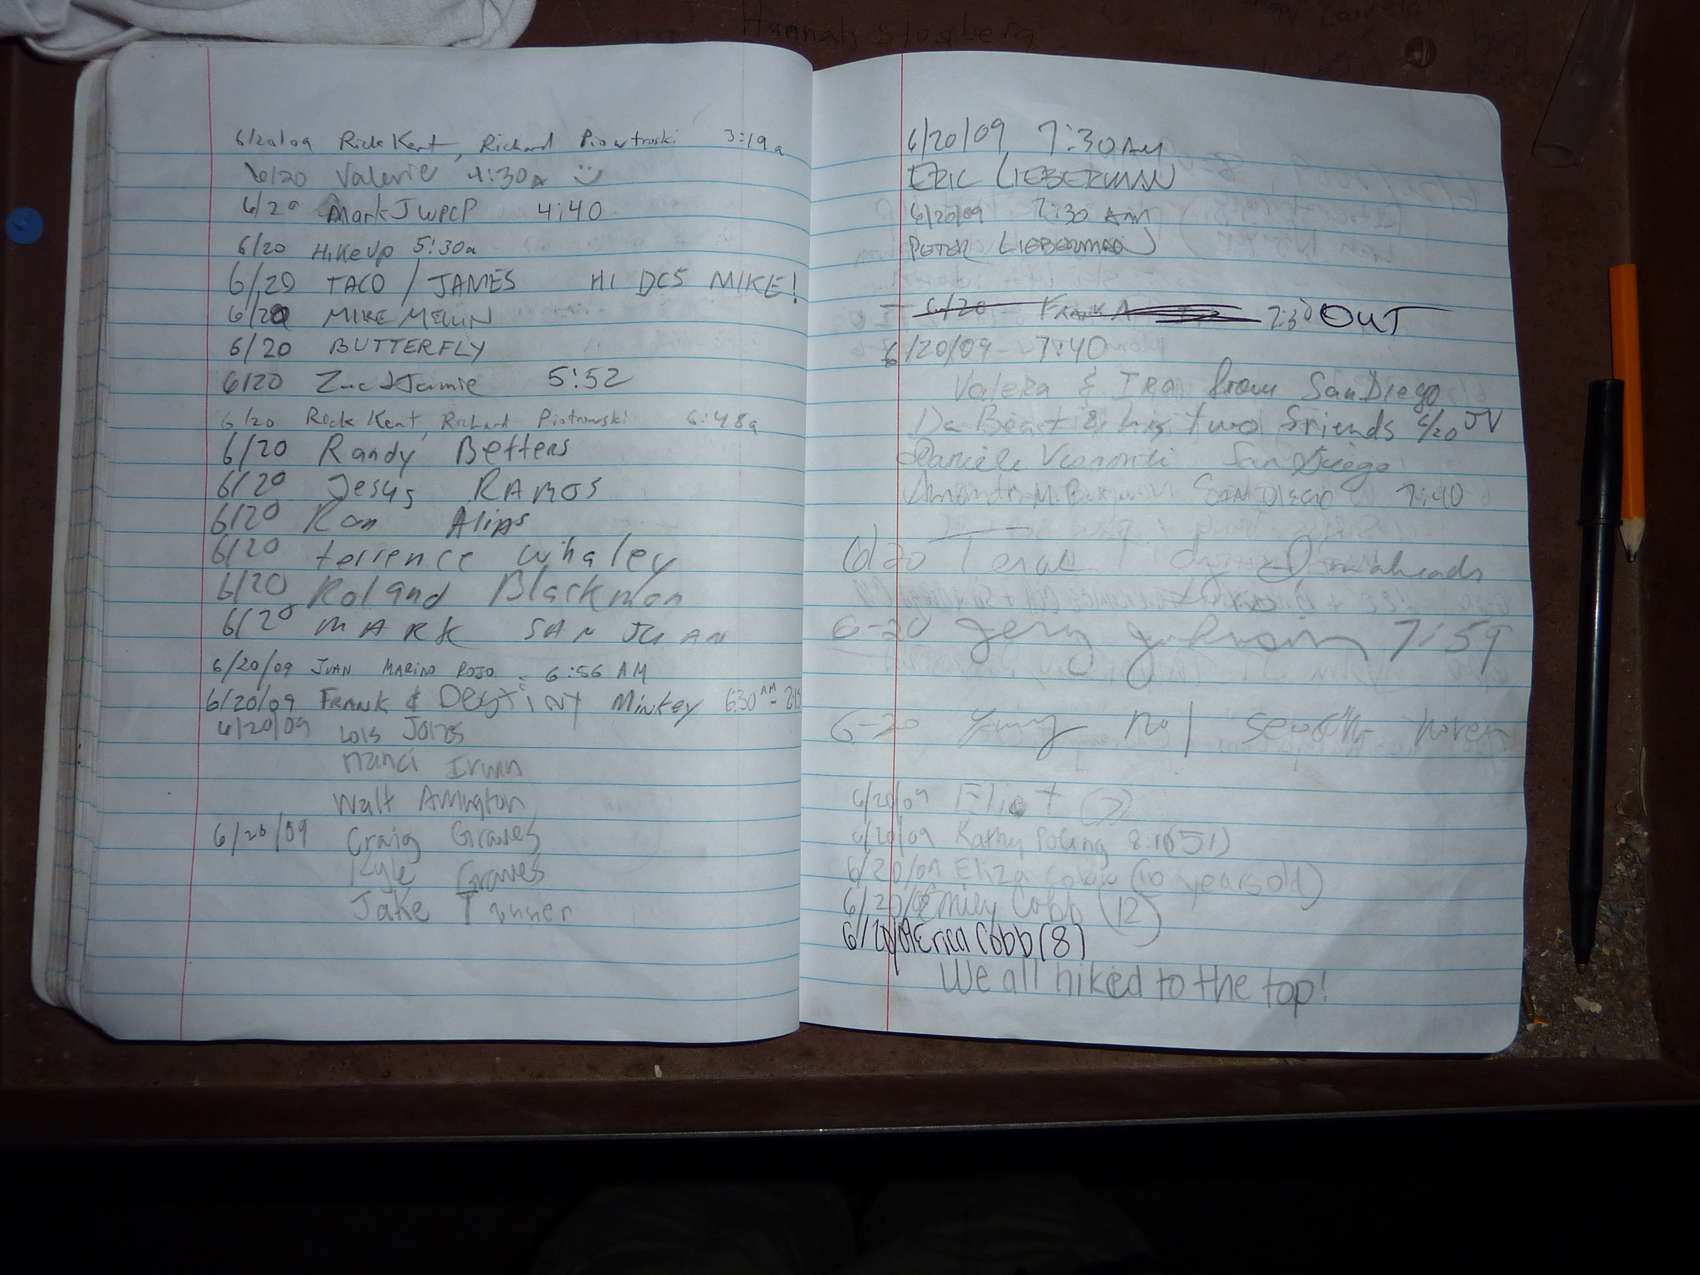 Hannah Slosberg
6/20/09 Rick Kent, Richard Piowtroski 3:19a
6/20 Valerie 4:30a
6/20 MarkJWPCP 4:40
6/20 HikeUp 5:30a
6/20 TACO / JAMES HI DCS MIKE!
6/20 MIKE MELLIN
6/20 BUTTERFLY
6/20 Jamie 5:52
6/20 Rick Kent, Richard Piotrowski 6:48a
6/20 Randy Betters
6/20 Jesus RAMOS
6/20 Ron
6/20 terrence whaley
6/20 Roland Blackmon
6/20 MARK SAN JUAN
6/20/09 JUAN MARINO ROJO - 6:56 AM
6/20/09 FRANK & DESTINY Minkey 6:30 AM -
6/20/09 Lois Jones
Nanci Irwin
Walt Amington
6/20/09 Craig Graves
Kyle Graves
Jake Tanner
6/20/09 7:30AM
ERIC LIEBERMAN
6/20/09 7:30 AM
PETER LIEBERMAN
6/20 FRANK A 7:30 OUT
6/20/09 - 7:40
Valera & Ira from San Diego
Da Beast & his two friends 6/20 JV
San Diego
SAN DIEGO 7:40
6/20
6-20 7:59
6-20
6/20/09 Eliot (7)
6/20/09 Kathy Poling (51)
6/20/09 Eliza Cobb (10 years old)
6/20/09 Emily Cobb (12)
6/20/09 Erica Cobb (8)
We all hiked to the top!